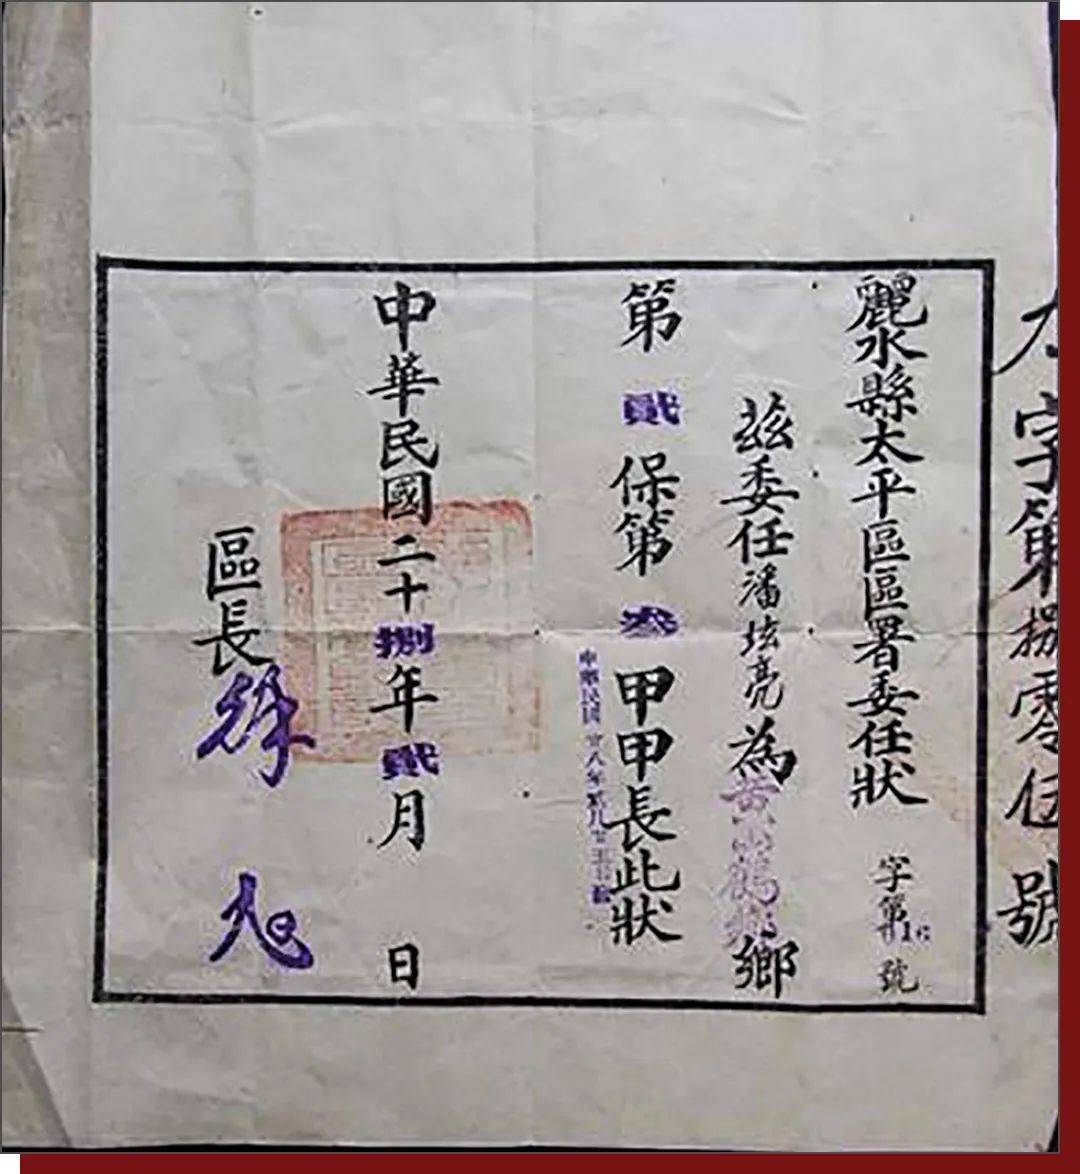 字第捌零伍號
麗水縣太平區區署委任狀 字第 號
茲委任潘垓亮為黃 鄉
第貳保第叁甲甲長此狀
中華民國廿八年貳月廿五日
中華民國二十捌年貳月 日
區長徐旭